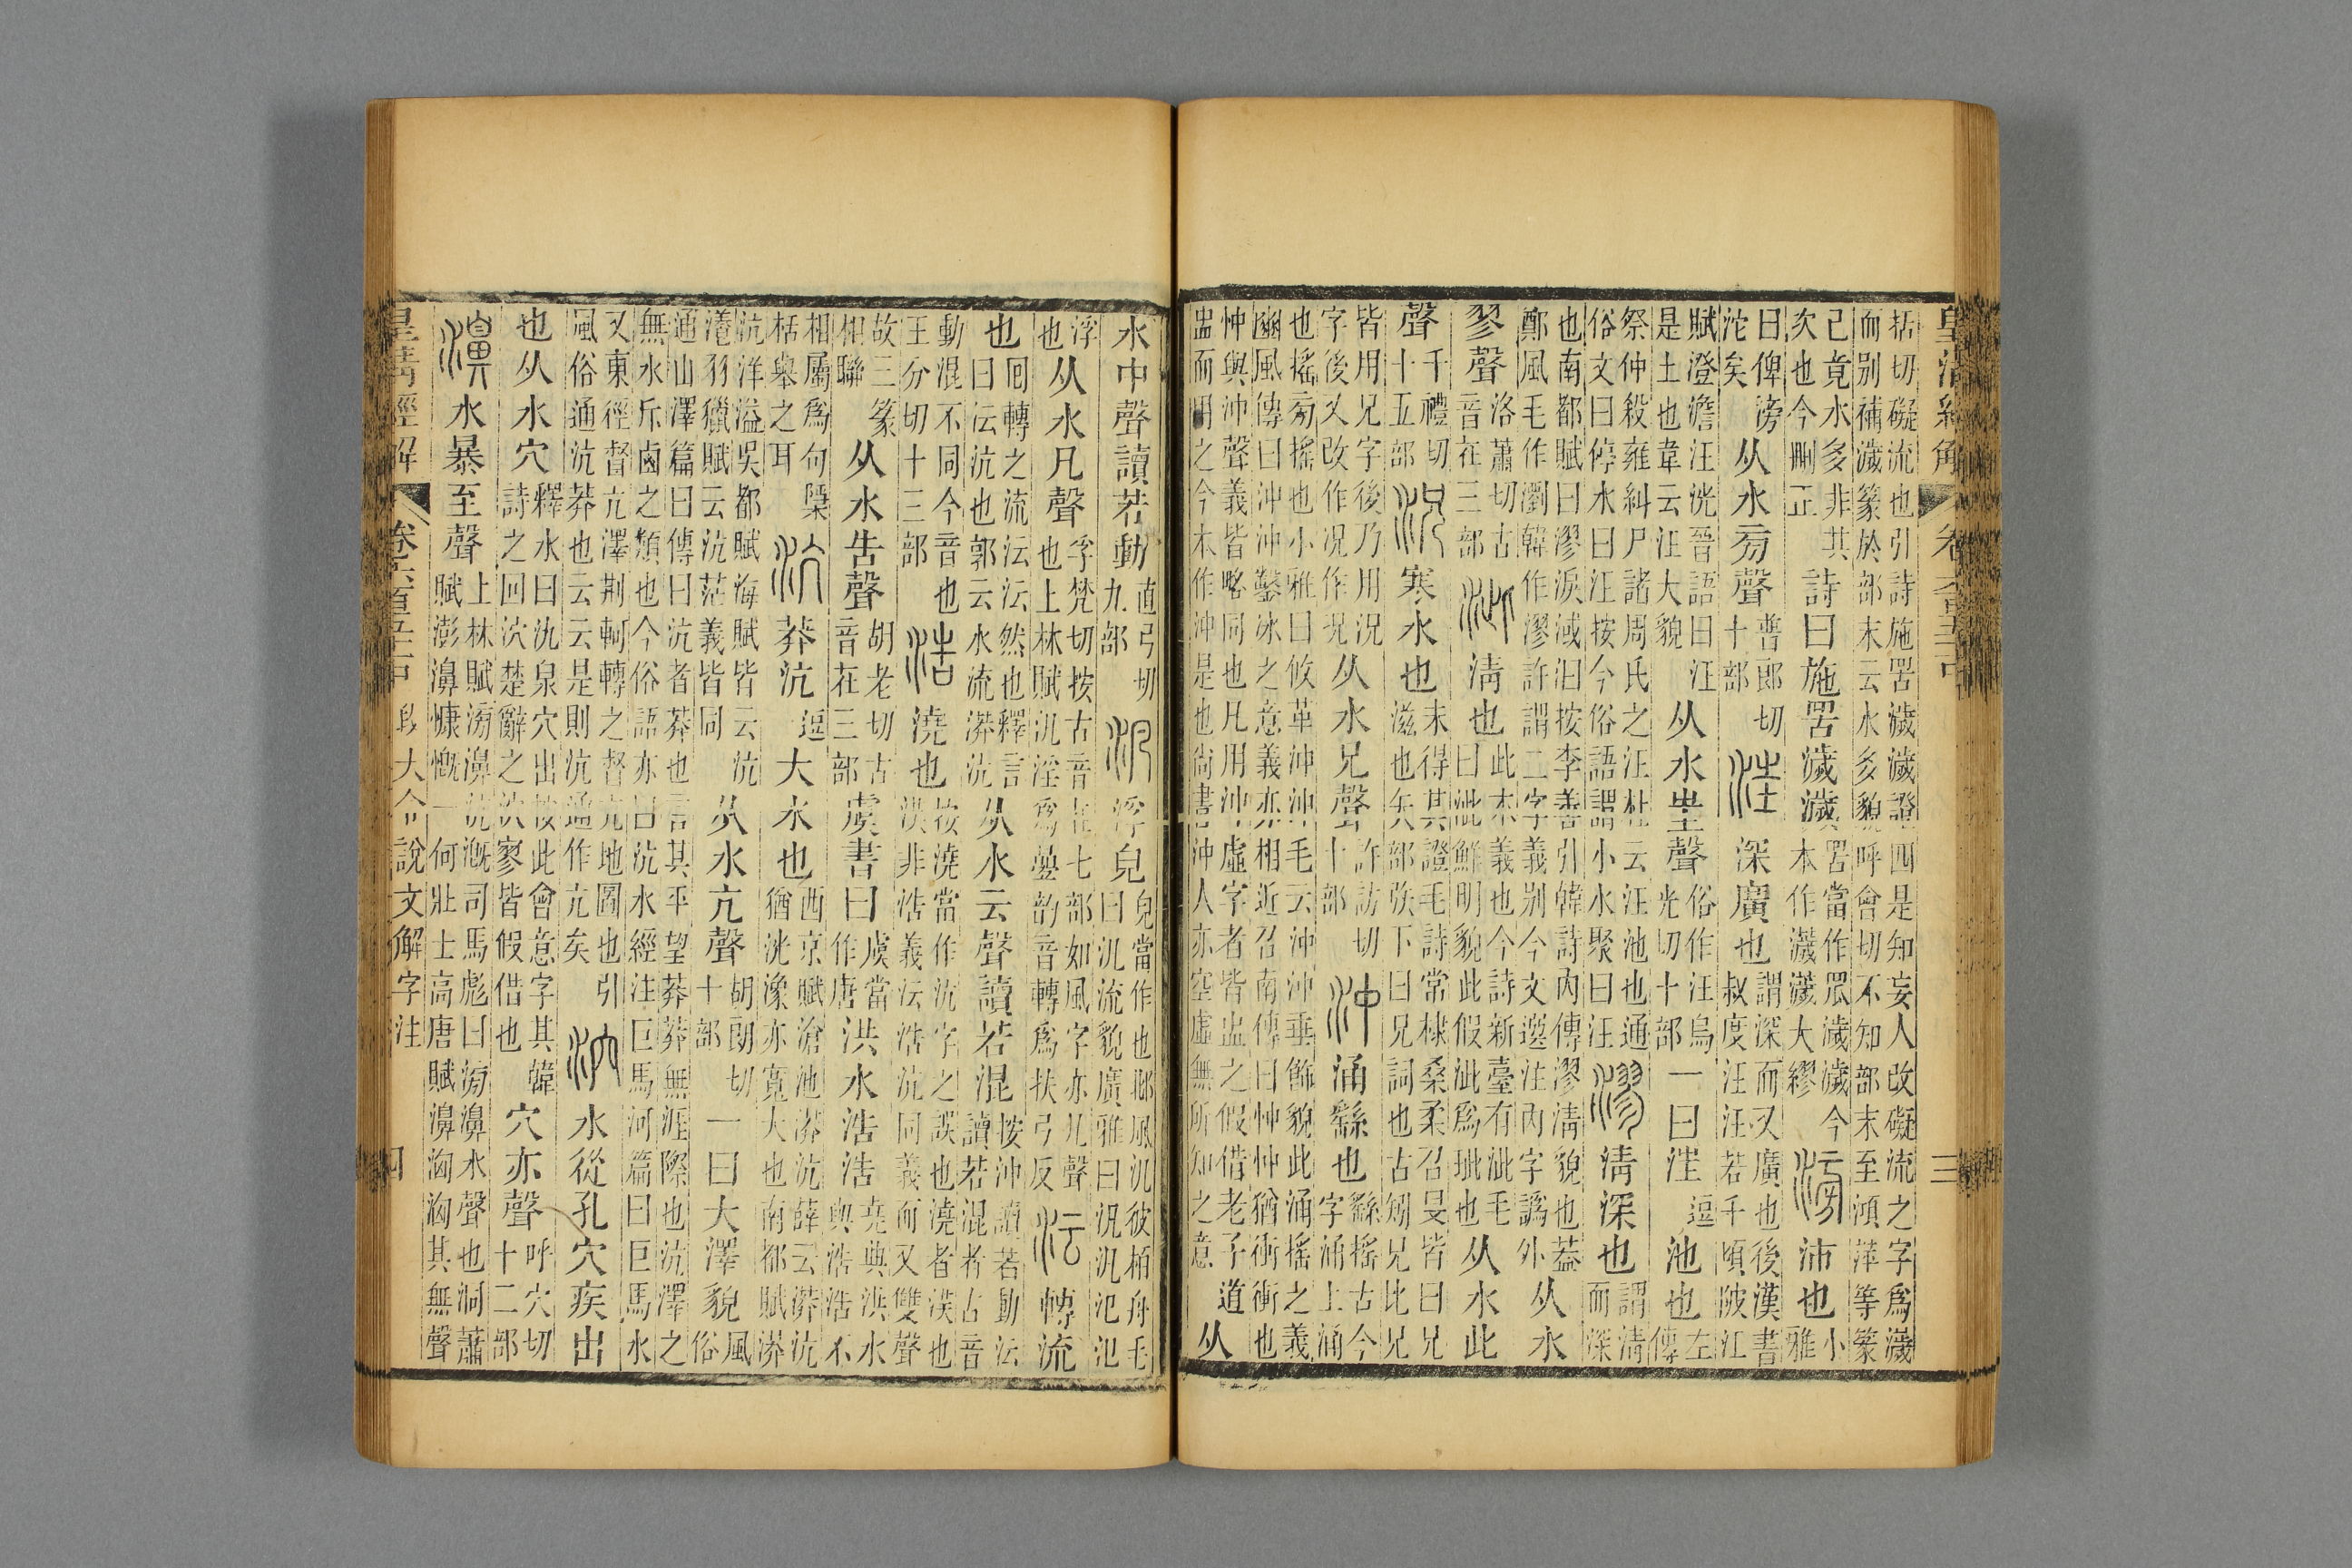 皇清經解 卷六百五十一中 三
栝切礙流也引詩施罟濊濊證四是知妄人改礙流之字爲濊
而别補濊篆於部末云水多貌呼會切不知部末至澒萍等篆
已竟水多非其
次也今刪正
詩曰施罟濊濊
罟當作眾濊濊今
本作濊濊大繆
滂沛也
小
雅
曰俾滂
沱矣
从水㫄聲
普郎切
十部
汪深廣也
謂深而又廣也後漢書
叔度汪汪若千頃陂江
賦澄澹汪洸晉語曰汪
是土也韋云汪大貌
从水㞷聲
俗作汪烏
光切十部
一曰汪
逗
池也
左
傳
祭仲殺雍糾尸諸周氏之汪杜云汪池也通
俗文曰停水曰汪按今俗語謂小水聚曰汪
漻清深也
謂清
而深
也南都賦曰漻淚淢汩按李善引韓詩內傳漻清貌也葢
鄭風毛作瀏韓作漻許謂二字義别今文選注內字譌外
从水
翏聲
洛蕭切古
音在三部
泚清也
此本義也今詩新臺有泚毛
曰泚鮮明貌此假泚爲玼也
从水此
聲
千禮切
十五部
況寒水也
未得其證毛詩常棣桑柔召旻皆曰兄
滋也矢部矤下曰兄詞也古矧兄比兄
皆用兄字後乃用況
字後又改作况作况
从水兄聲
許訪切
十部
沖涌繇也
繇搖古今
字涌上涌
也搖㫄搖也小雅曰攸革沖沖毛云沖沖垂飾貌此涌搖之義
豳風傳曰沖沖鑿冰之意義亦相近召南傳曰忡忡猶衝衝也
忡與沖聲義皆略同也凡用沖虛字者皆盅之假借老子道
盅而用之今本作沖是也尚書沖人亦空虛無所知之意
从
水中聲讀若動
直弓切
九部
汎浮皃
皃當作也邶風汎彼栢舟毛
曰汎流貌廣雅曰汎汎氾氾
浮
也
从水凡聲
孚梵切按古音在七部如風字亦凡聲
也上林賦汎淫爲疊韵音轉爲扶弓反
沄轉流
也
囘轉之流沄沄然也釋言
曰沄沆也郭云水流漭沆
从水云聲讀若混
按沖讀若動沄
讀若混者古音
動混不同今音也
王分切十三部
浩澆也
按澆當作沆字之誤也澆者𣵽也
洪非浩義沄浩沆同義而又雙聲
故三篆
相聯
从水告聲
胡老切古
音在三部
虞書曰
虞當
作唐
洪水浩浩
堯典洪水
與浩浩不
相屬爲句檃
栝舉之耳
沆莽沆
逗
大水也
西京賦滄池漭沆薛云漭沆
猶洸潒亦寬大也南都賦漭
沆洋溢吳都賦海賦皆云沆
瀁羽獵賦云沆茫義皆同
从水亢聲
胡朗切
十部
一曰大澤貌
風
俗
通山澤篇曰傳曰沆者莽也言其平望莽莽無涯際也沆澤之
無水斥鹵之類也今俗語亦曰沆水經注巨馬河篇曰巨馬水
又東徑督亢澤荆軻轉之督亢地圖也引
風俗通沆莽也云云是則沆通作亢矣
泬水從孔穴疾出
也从水穴
釋水曰氿泉穴出按此會意字其韓
詩之回泬楚辭之泬寥皆假借也
穴亦聲
呼穴切
十二部
濞水暴至聲
上林賦滂濞沆溉司馬彪曰滂濞水聲也洞蕭
賦澎濞慷慨一何壯士高唐賦濞洶洶其無聲
皇清經解 卷六百五十一中 段大令說文解字注 四